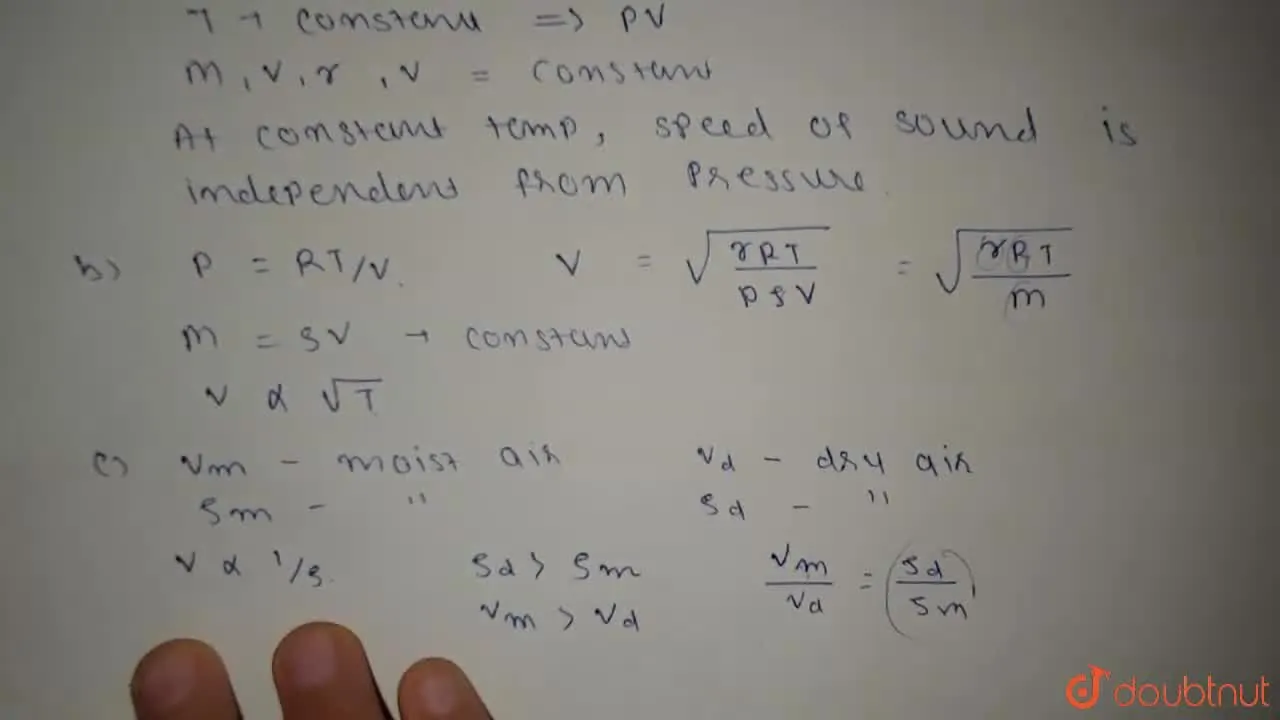 T → constant => PV
m, v, γ, v = constant
At constant temp, speed of sound is
independent from pressure.
b) P = RT/V. V = √(γRT/PρV) = √(γRT/m)
m = ρV → constant
v α √T
c) vm - moist air vd - dry air
ρm - " ρd - "
v α 1/ρ. ρd > ρm vm/vd = (ρd/ρm)
vm > vd
doubtnut